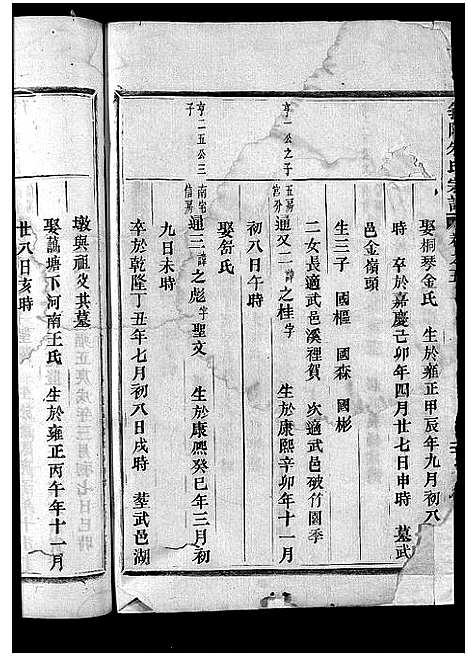 氏宗譜
娶桐琴金氏 生於雍正甲辰年九月初八
時 卒於嘉慶己卯年四月廿七日申時 墓武
邑金嶺頭
生三子 國樞 國森 國彬
二女長適武邑溪裡賀 次適武邑破竹園季
亨一公之子 五房 宮外 通文二諱之桂字 生於康熙辛卯年十一月
初八日午時
娶舒氏
亨二五公三子 南宅 信房 通二諱之彪字聖文 生於康熙癸巳年三月初
九日未時
卒於乾隆丁丑年七月初八日戌時 塟武邑湖
墩與祖父共墓
娶藕塘下河南王氏 生於雍正丙午年十一月
廿八日亥時